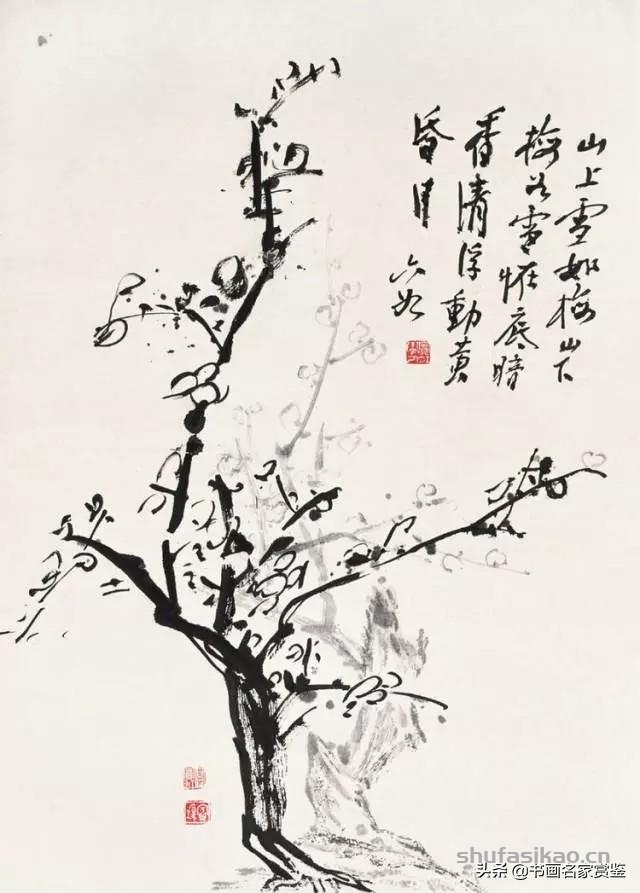 山上雪如梅山下
梅如雪怪底暗
香清浮動黄
昏月 六如
shufasikao.com
头条 @书画名家赏鉴